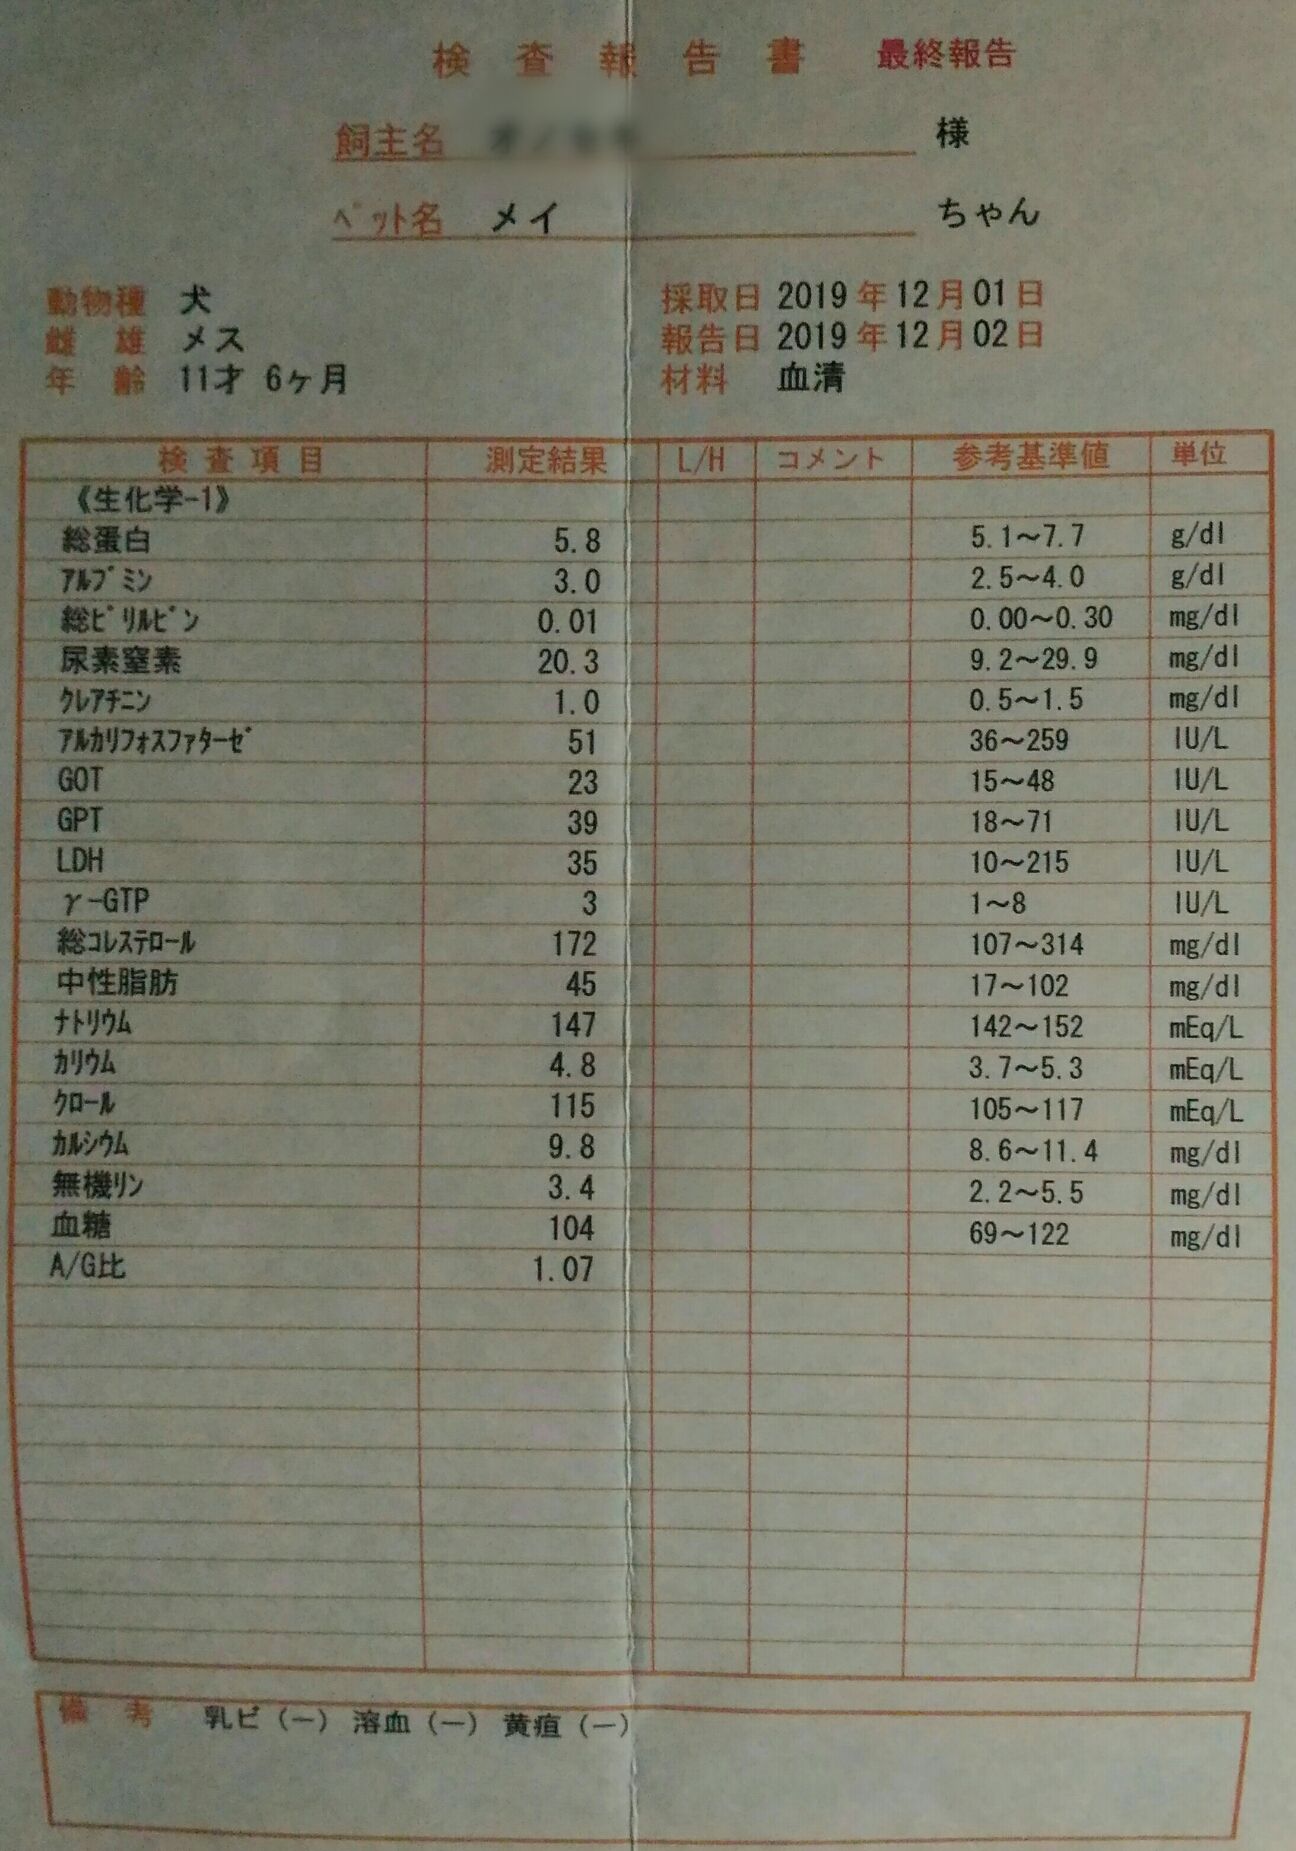 検査報告書 最終報告
飼主名 様
ペット名 メイ ちゃん
動物種 犬 採取日 2019年12月01日
雌雄 メス 報告日 2019年12月02日
年齢 11才 6ヶ月 材料 血清
検査項目 測定結果 L/H コメント 参考基準値 単位
《生化学-1》
総蛋白 5.8 5.1～7.7 g/dl
アルブミン 3.0 2.5～4.0 g/dl
総ビリルビン 0.01 0.00～0.30 mg/dl
尿素窒素 20.3 9.2～29.9 mg/dl
クレアチニン 1.0 0.5～1.5 mg/dl
アルカリフォスファターゼ 51 36～259 IU/L
GOT 23 15～48 IU/L
GPT 39 18～71 IU/L
LDH 35 10～215 IU/L
γ-GTP 3 1～8 IU/L
総コレステロール 172 107～314 mg/dl
中性脂肪 45 17～102 mg/dl
ナトリウム 147 142～152 mEq/L
カリウム 4.8 3.7～5.3 mEq/L
クロール 115 105～117 mEq/L
カルシウム 9.8 8.6～11.4 mg/dl
無機リン 3.4 2.2～5.5 mg/dl
血糖 104 69～122 mg/dl
A/G比 1.07
備考 乳ビ（－）溶血（－）黄疸（－）